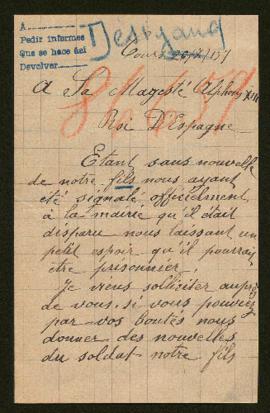 A
Pedir informes
Que se hace del
Devolver
A Sa Magesté Alphonse XIII
Roi D'Espagne
Etant sans nouvelle
de notre fils nous ayant
été signalé officielement
à la mairie qu'il était
disparu nous laissant un
petit espoir qu'il pourrait
être prisonnier.
Je viens solliciter auprès
de vous, si vous pouviez
par vos boutés nous
donner des nouvelles
du soldat notre fils